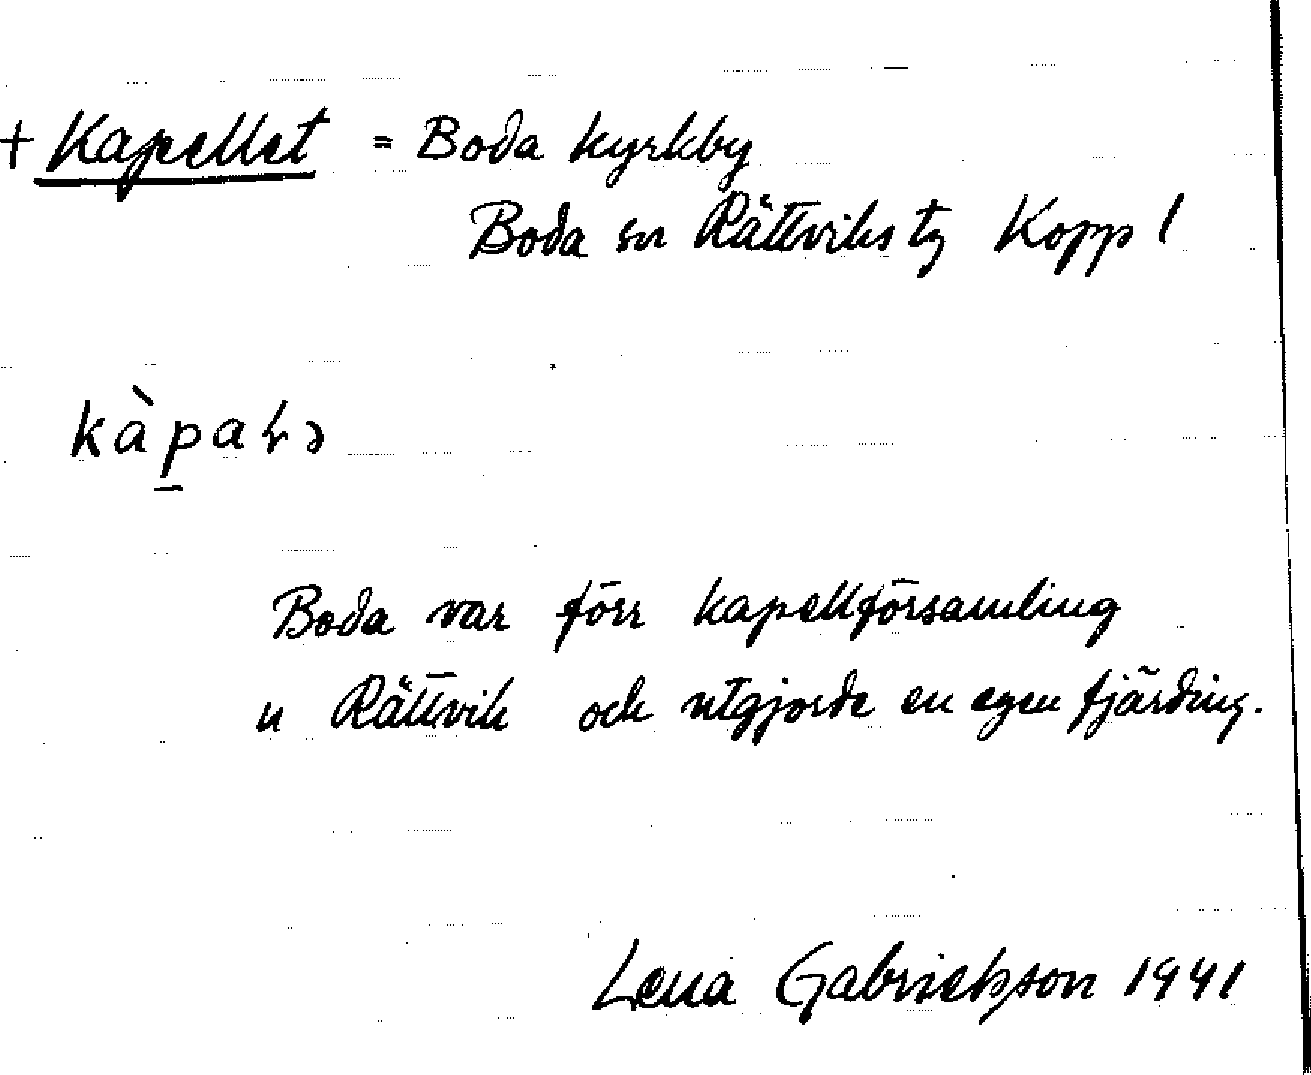 + Kapellet = Boda kyrkby
Boda sn Rättviks tg Kopp l
Boda var förr kapellförsamling
u Rättvik och utgjorde en egen fjärding.
Lena Gabrielsson 1941